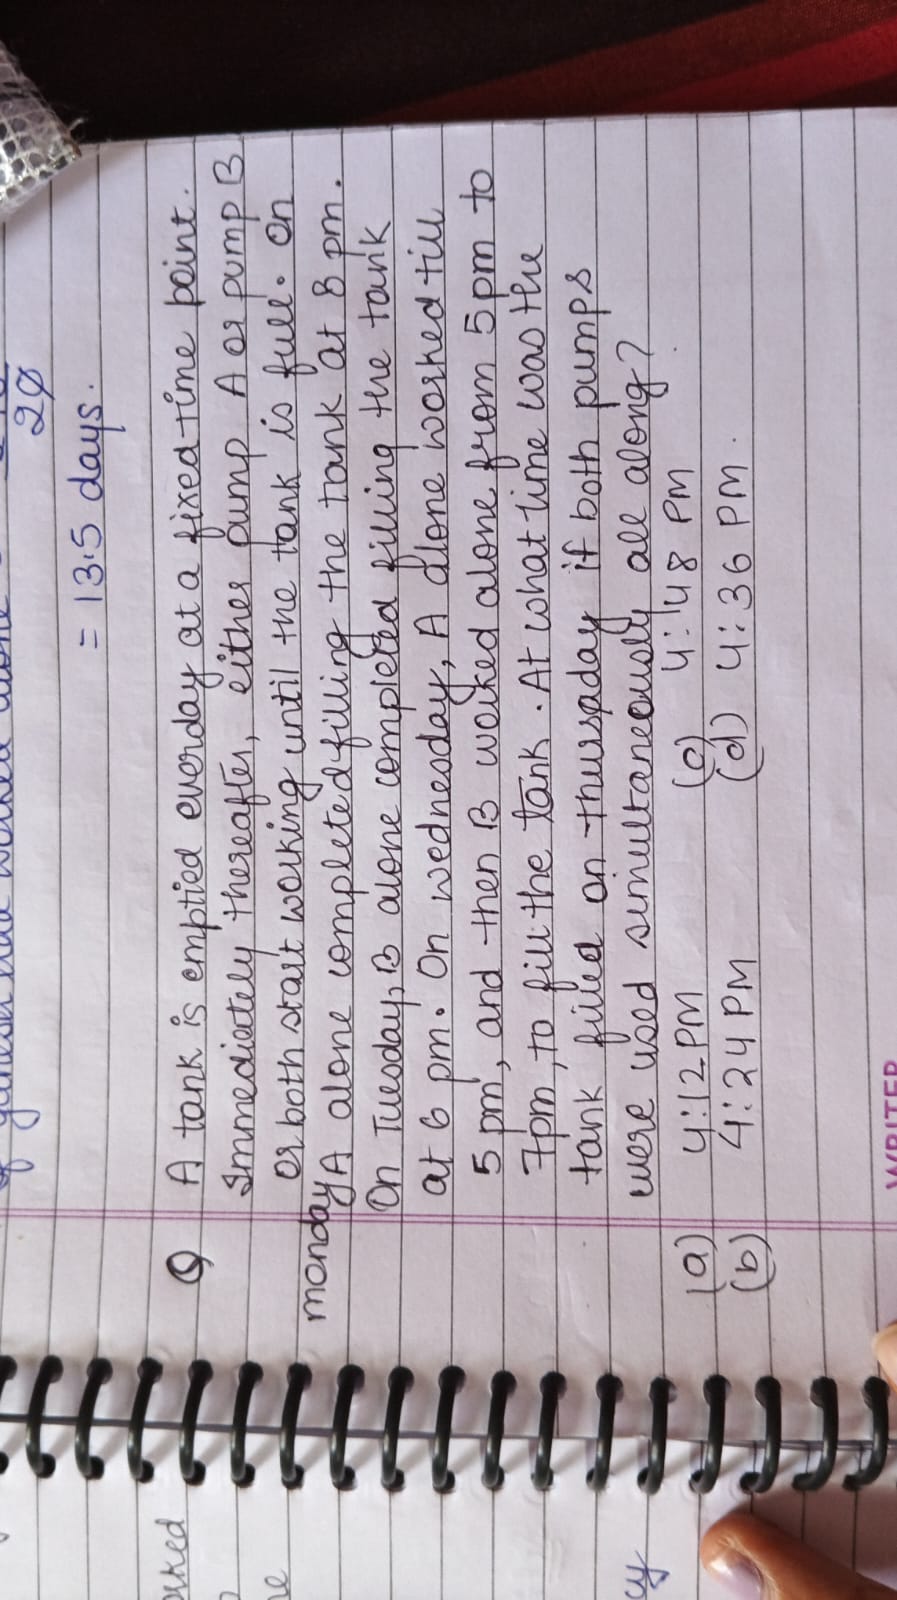 2Ø
= 13.5 days.
Q A tank is emptied everday at a fixed time point.
Immediately thereafter, either pump A or pump B
or both start working until the tank is full. On
monday A alone completed filling the tank at 8 pm.
On Tuesday, B alone completed filling the tank
at 6 pm. On wednesday, A alone worked till
5 pm, and then B worked alone from 5 pm to
7pm, to fill the tank. At what time was the
tank filled on thursaday if both pumps
were used simultaneously all along?
(a) 4:12 PM (c) 4:48 PM
(b) 4:24 PM (d) 4:36 PM.
WRITER
orked
cy